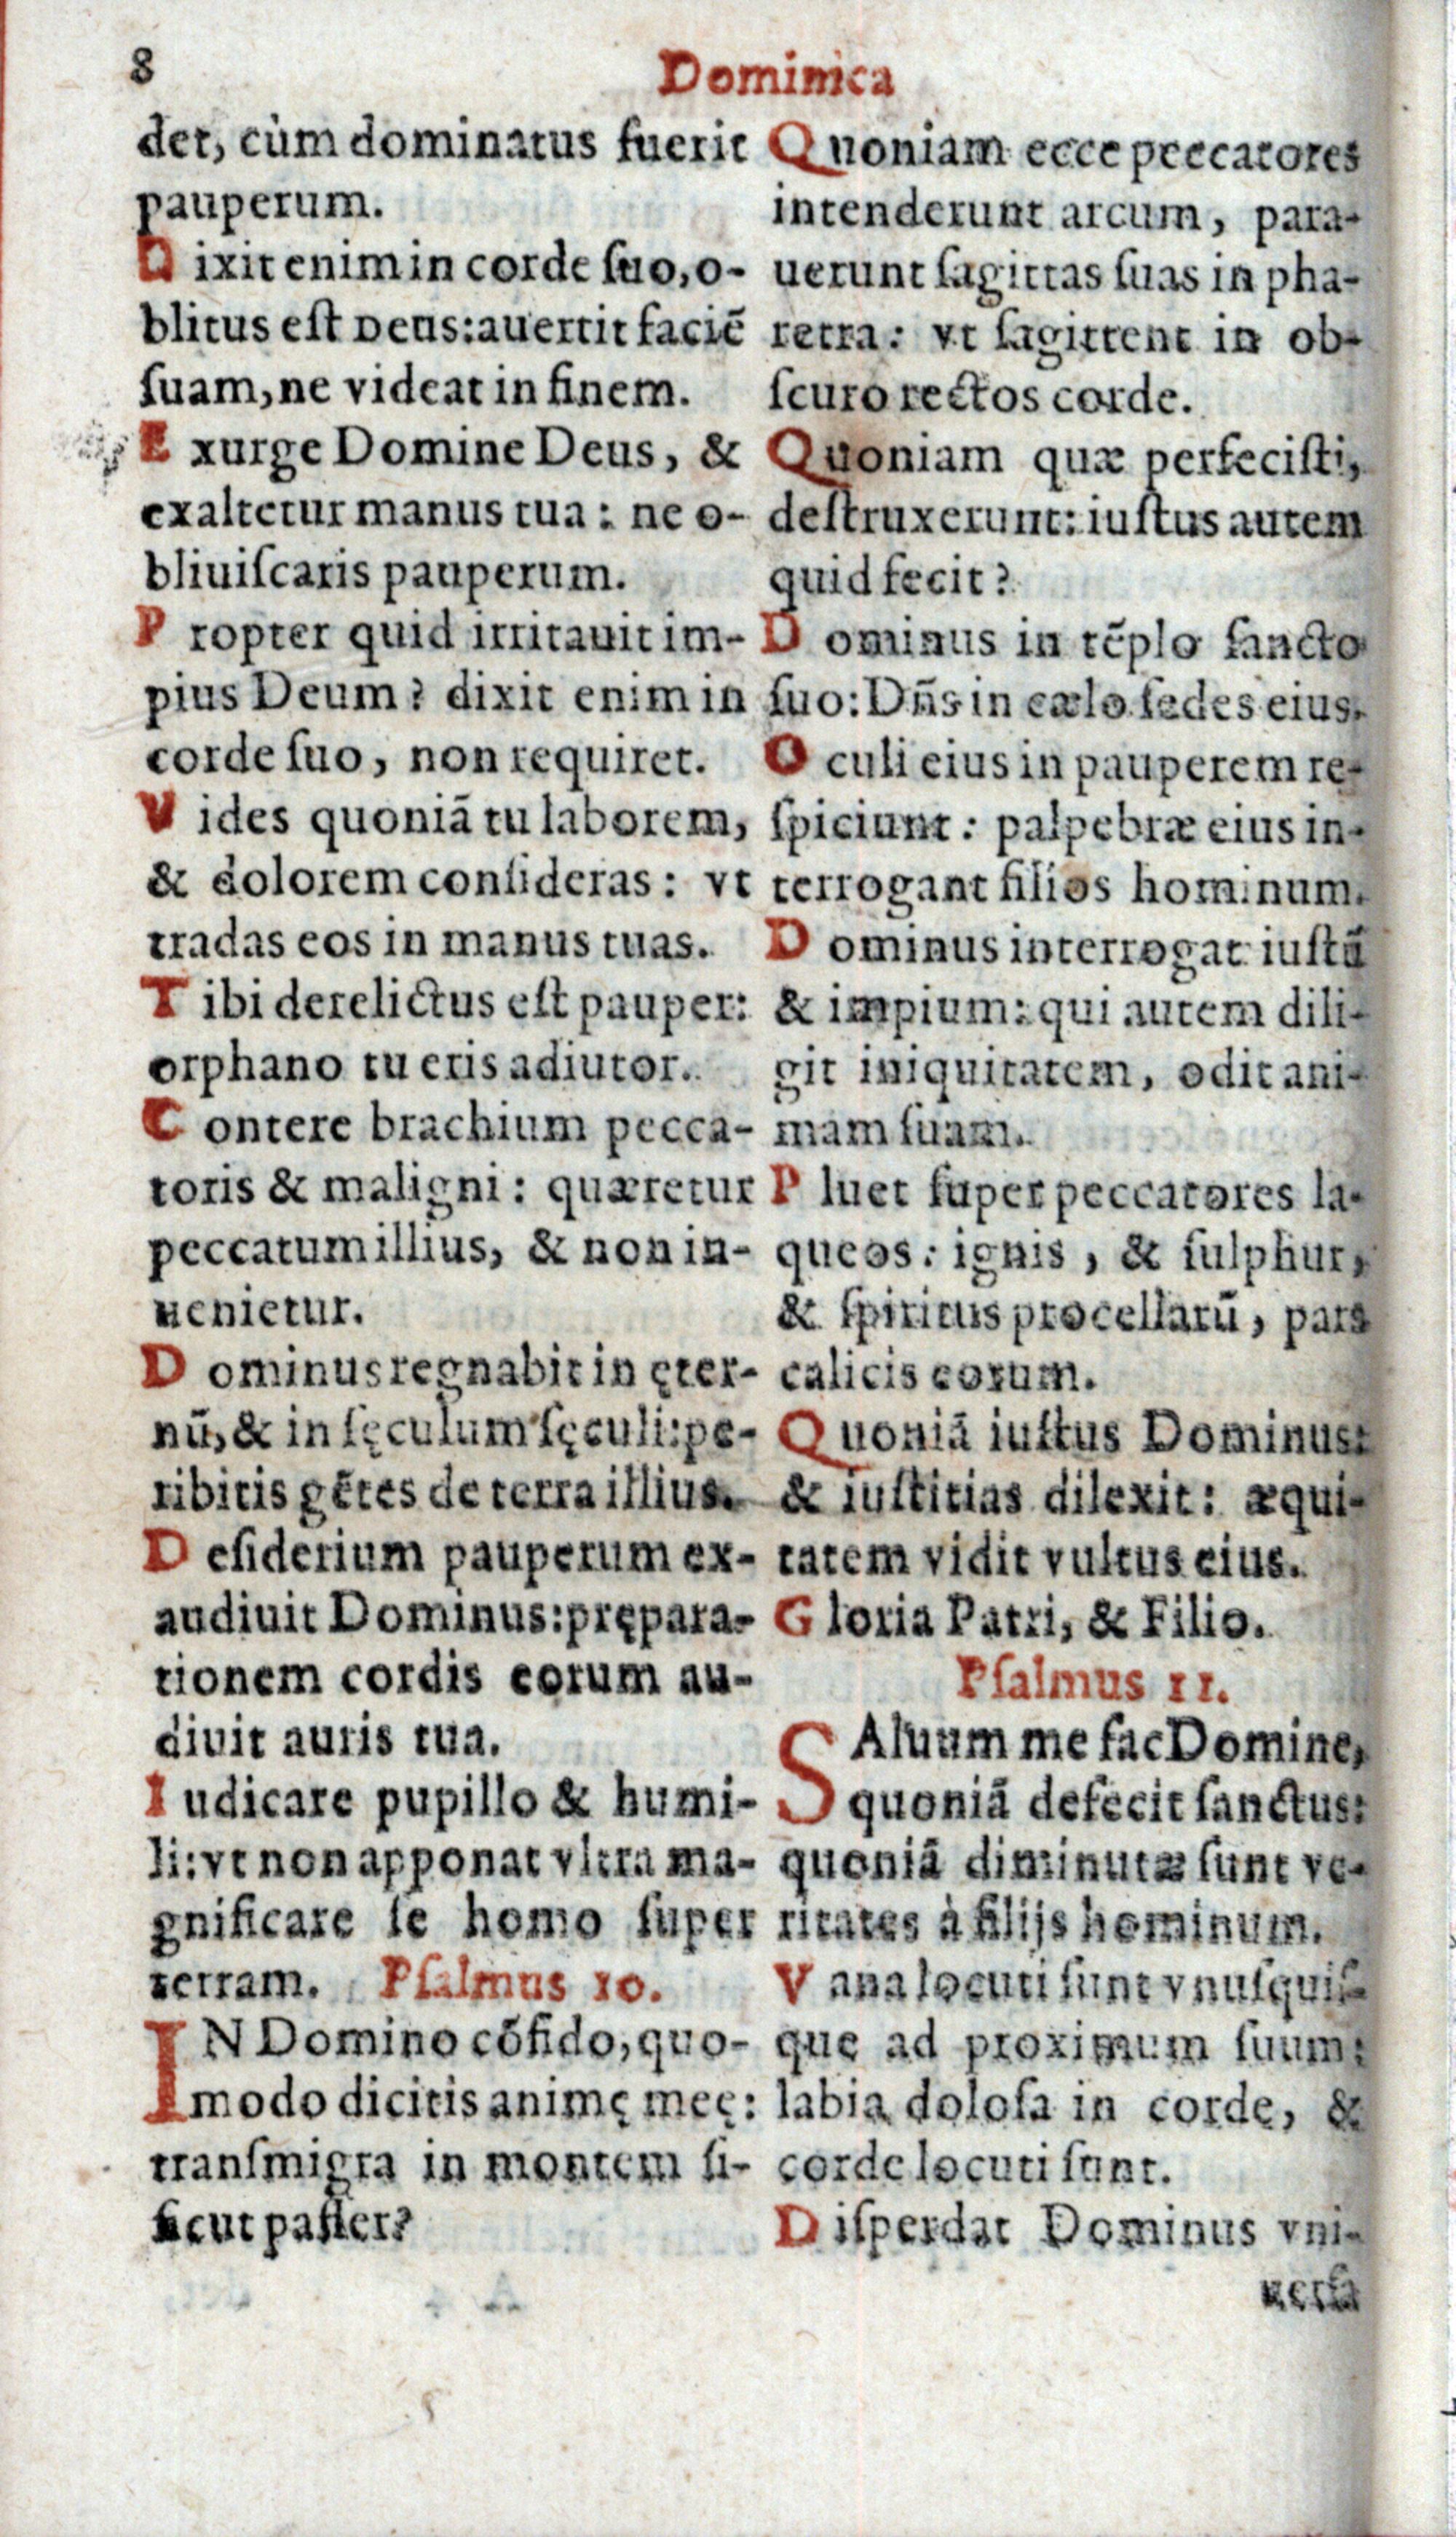 8
Dominica
det, cùm dominatus fuerit
pauperum.
Dixit enim in corde ſuo, o-
blitus eſt Deus: auertit faciē
ſuam, ne videat in finem.
Exurge Domine Deus, &
exaltetur manus tua: ne o-
bliuiſcaris pauperum.
Propter quid irritauit im-
pius Deum? dixit enim in
corde ſuo, non requiret.
Vides quoniā tu laborem,
& dolorem conſideras: vt
tradas eos in manus tuas.
Tibi derelictus eſt pauper:
orphano tu eris adiutor.
Contere brachium pecca-
toris & maligni: quæretur
peccatum illius, & non in-
uenietur.
Dominus regnabit in ęter-
nū, & in ſęculum ſęculi: pe-
ribitis gētes de terra illius.
Deſiderium pauperum ex-
audiuit Dominus: prępara-
tionem cordis eorum au-
diuit auris tua.
Iudicare pupillo & humi-
li: vt non apponat vltra ma-
gnificare ſe homo ſuper
terram. Pſalmus 10.
IN Domino cōfido, quo-
modo dicitis animę meę:
tranſmigra in montem ſi-
ſicut paſſer?
Quoniam ecce peccatores
intenderunt arcum, para-
uerunt ſagittas ſuas in pha-
retra: vt ſagittent in ob-
ſcuro rectos corde.
Quoniam quæ perfeciſti,
deſtruxerunt: iuſtus autem
quid fecit?
Dominus in tēplo ſancto
ſuo: Dñs in cælo ſedes eius.
Oculi eius in pauperem re-
ſpiciunt: palpebræ eius in-
terrogant filios hominum.
Dominus interrogat iuſtū
& impium: qui autem dili-
git iniquitatem, odit ani-
mam ſuam.
Pluet ſuper peccatores la-
queos: ignis, & ſulphur,
& ſpiritus procellarū, pars
calicis eorum.
Quoniā iuſtus Dominus:
& iuſtitias dilexit: æqui-
tatem vidit vultus eius.
Gloria Patri, & Filio.
Pſalmus 11.
SAluum me fac Domine,
quoniā defecit ſanctus:
quoniā diminutæ ſunt ve-
ritates à filijs hominum.
Vana locuti ſunt vnuſquiſ-
que ad proximum ſuum:
labia doloſa in corde, &
corde locuti ſunt.
Diſperdat Dominus vni-
uerſa